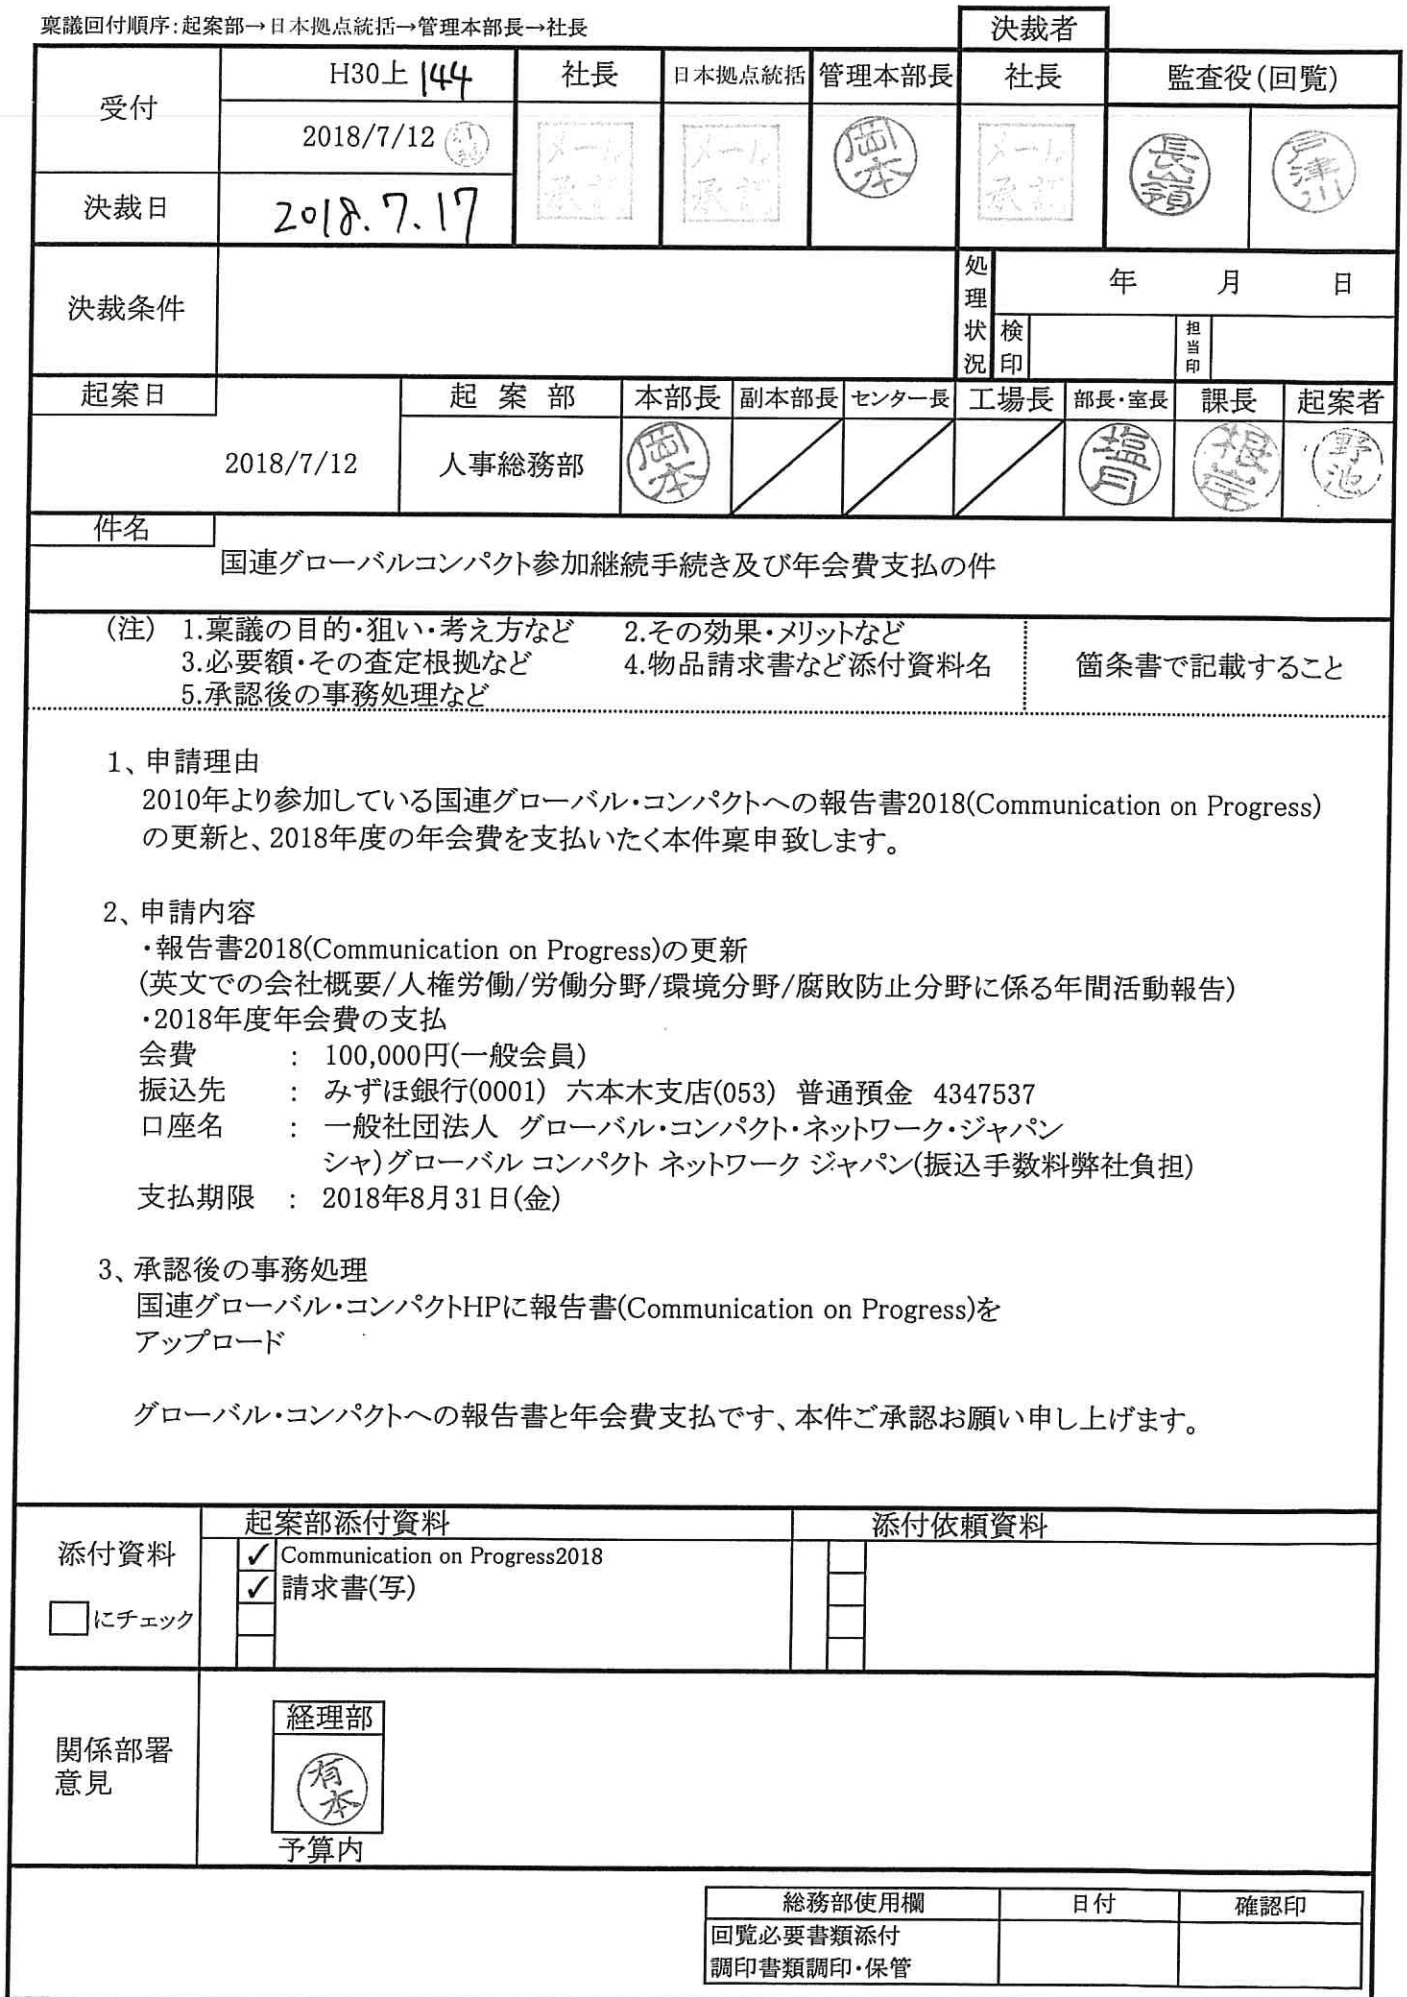 稟議回付順序:起案部→日本拠点統括→管理本部長→社長
決裁者
受付
H30上 144
社長
日本拠点統括
管理本部長
社長
監査役(回覧)
2018/7/12
メール
承認
メール
承認
岡本
メール
承認
長嶺
戸津川
決裁日
2018.7.17
決裁条件
処理状況
年 月 日
検印
担当印
起案日
起案部
本部長
副本部長
センター長
工場長
部長・室長
課長
起案者
2018/7/12
人事総務部
岡本
塩月
根岸
野池
件名
国連グローバルコンパクト参加継続手続き及び年会費支払の件
(注) 1.稟議の目的・狙い・考え方など 2.その効果・メリットなど
3.必要額・その査定根拠など 4.物品請求書など添付資料名
箇条書で記載すること
5.承認後の事務処理など
1、申請理由
2010年より参加している国連グローバル・コンパクトへの報告書2018(Communication on Progress)
の更新と、2018年度の年会費を支払いたく本件稟申致します。
2、申請内容
・報告書2018(Communication on Progress)の更新
(英文での会社概要/人権労働/労働分野/環境分野/腐敗防止分野に係る年間活動報告)
・2018年度年会費の支払
会費 : 100,000円(一般会員)
振込先 : みずほ銀行(0001) 六本木支店(053) 普通預金 4347537
口座名 : 一般社団法人 グローバル・コンパクト・ネットワーク・ジャパン
シャ)グローバル コンパクト ネットワーク ジャパン(振込手数料弊社負担)
支払期限 : 2018年8月31日(金)
3、承認後の事務処理
国連グローバル・コンパクトHPに報告書(Communication on Progress)を
アップロード
グローバル・コンパクトへの報告書と年会費支払です、本件ご承認お願い申し上げます。
添付資料
□にチェック
起案部添付資料
添付依頼資料
✓ Communication on Progress2018
✓ 請求書(写)
関係部署
意見
経理部
有本
予算内
総務部使用欄
日付
確認印
回覧必要書類添付
調印書類調印・保管